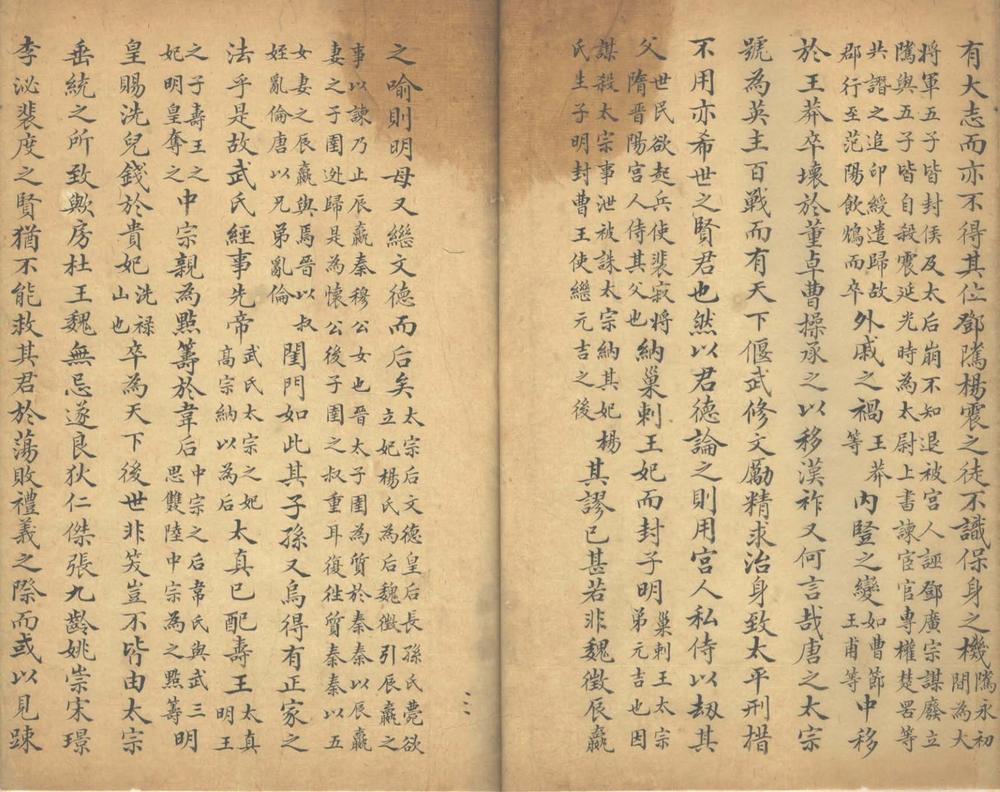 有大志而亦不得其位鄧隲楊震之徒不識保身之機隲永初間為大
將軍五子皆封侯及太后崩不知退被宮人誣鄧廣宗謀廢立
隲與五子皆自殺震延光時為太尉上書諫宦官專權楚罟等
共譖之追印綬遣歸故郡行至茫陽飲鴆而卒外戚之禍王莽等內豎之變如曹節王甫等中移
於王莽卒壞於董卓曹操承之以移漢祚又何言哉唐之太宗
號為英主百戰而有天下偃武修文勵精求治身致太平刑措
不用亦希世之賢君也然以君德論之則用宮人私侍以刼其
父世民欲起兵使裴寂將隋晋陽宮人侍其父也納巢剌王妃而封子明巢刺王太宗弟元吉也因
謀殺太宗事泄被誅太宗納其妃楊氏生子明封曹王使繼元吉之後其謬已甚若非魏徵辰嬴
之喻則明母又繼文德而后矣太宗后文德皇后長孫氏薨欲立妃楊氏為后魏徵引辰嬴之
事以諫乃止辰嬴秦穆公女也晋太子圉為質於秦秦以辰嬴
妻之子圉迯歸是為懷公後子圉之叔重耳復徃質秦秦以五
女妻之辰嬴與焉晋以叔姪亂倫唐以兄弟亂倫閨門如此其子孫又烏得有正家之
法乎是故武氏經事先帝武氏太宗之妃高宗納以為后太真已配壽王太真明王
之子壽王之妃明皇奪之中宗親為點籌於韋后中宗之后韋氏與武三思雙陸中宗為之點籌明
皇賜洗兒錢於貴妃洗祿山也卒為天下後世非笑豈不皆由太宗
垂統之所致歟房杜王魏無忌遂良狄仁傑張九齡姚崇宋璟
李泌裴度之賢猶不能救其君於蕩敗禮義之際而或以見踈